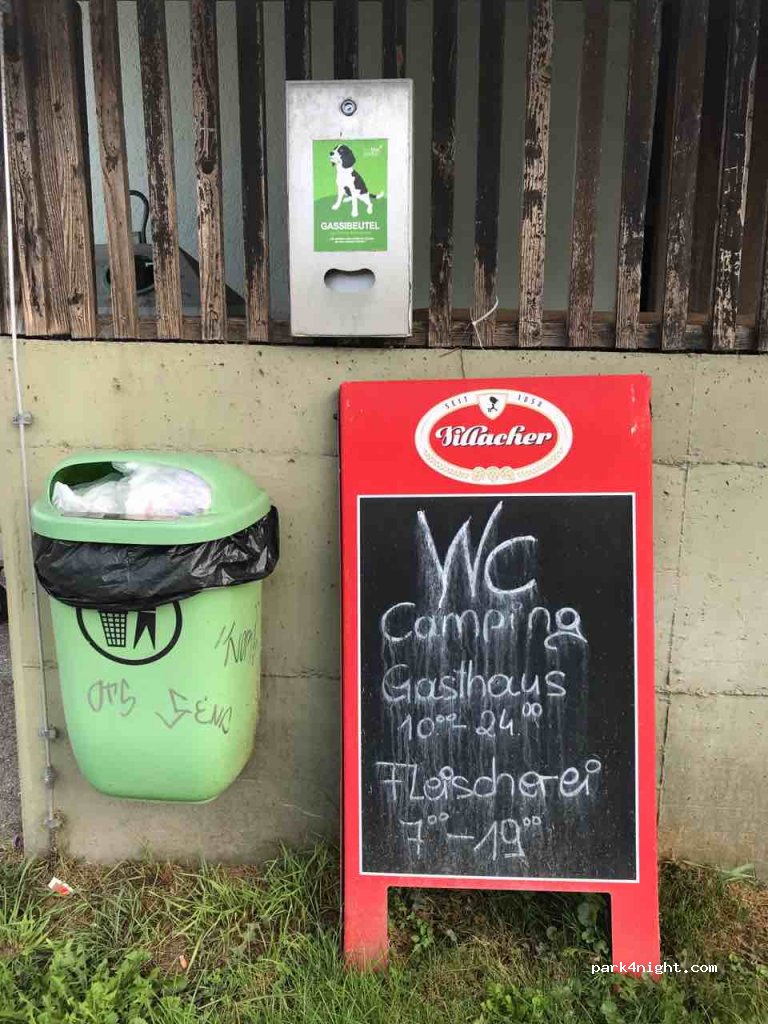 GASSIBEUTEL
SEIT 1858
Villacher
WC
Camping
Gasthaus
10⁰⁰-24.⁰⁰
Fleischerei
7⁰⁰-19⁰⁰
park4night.com